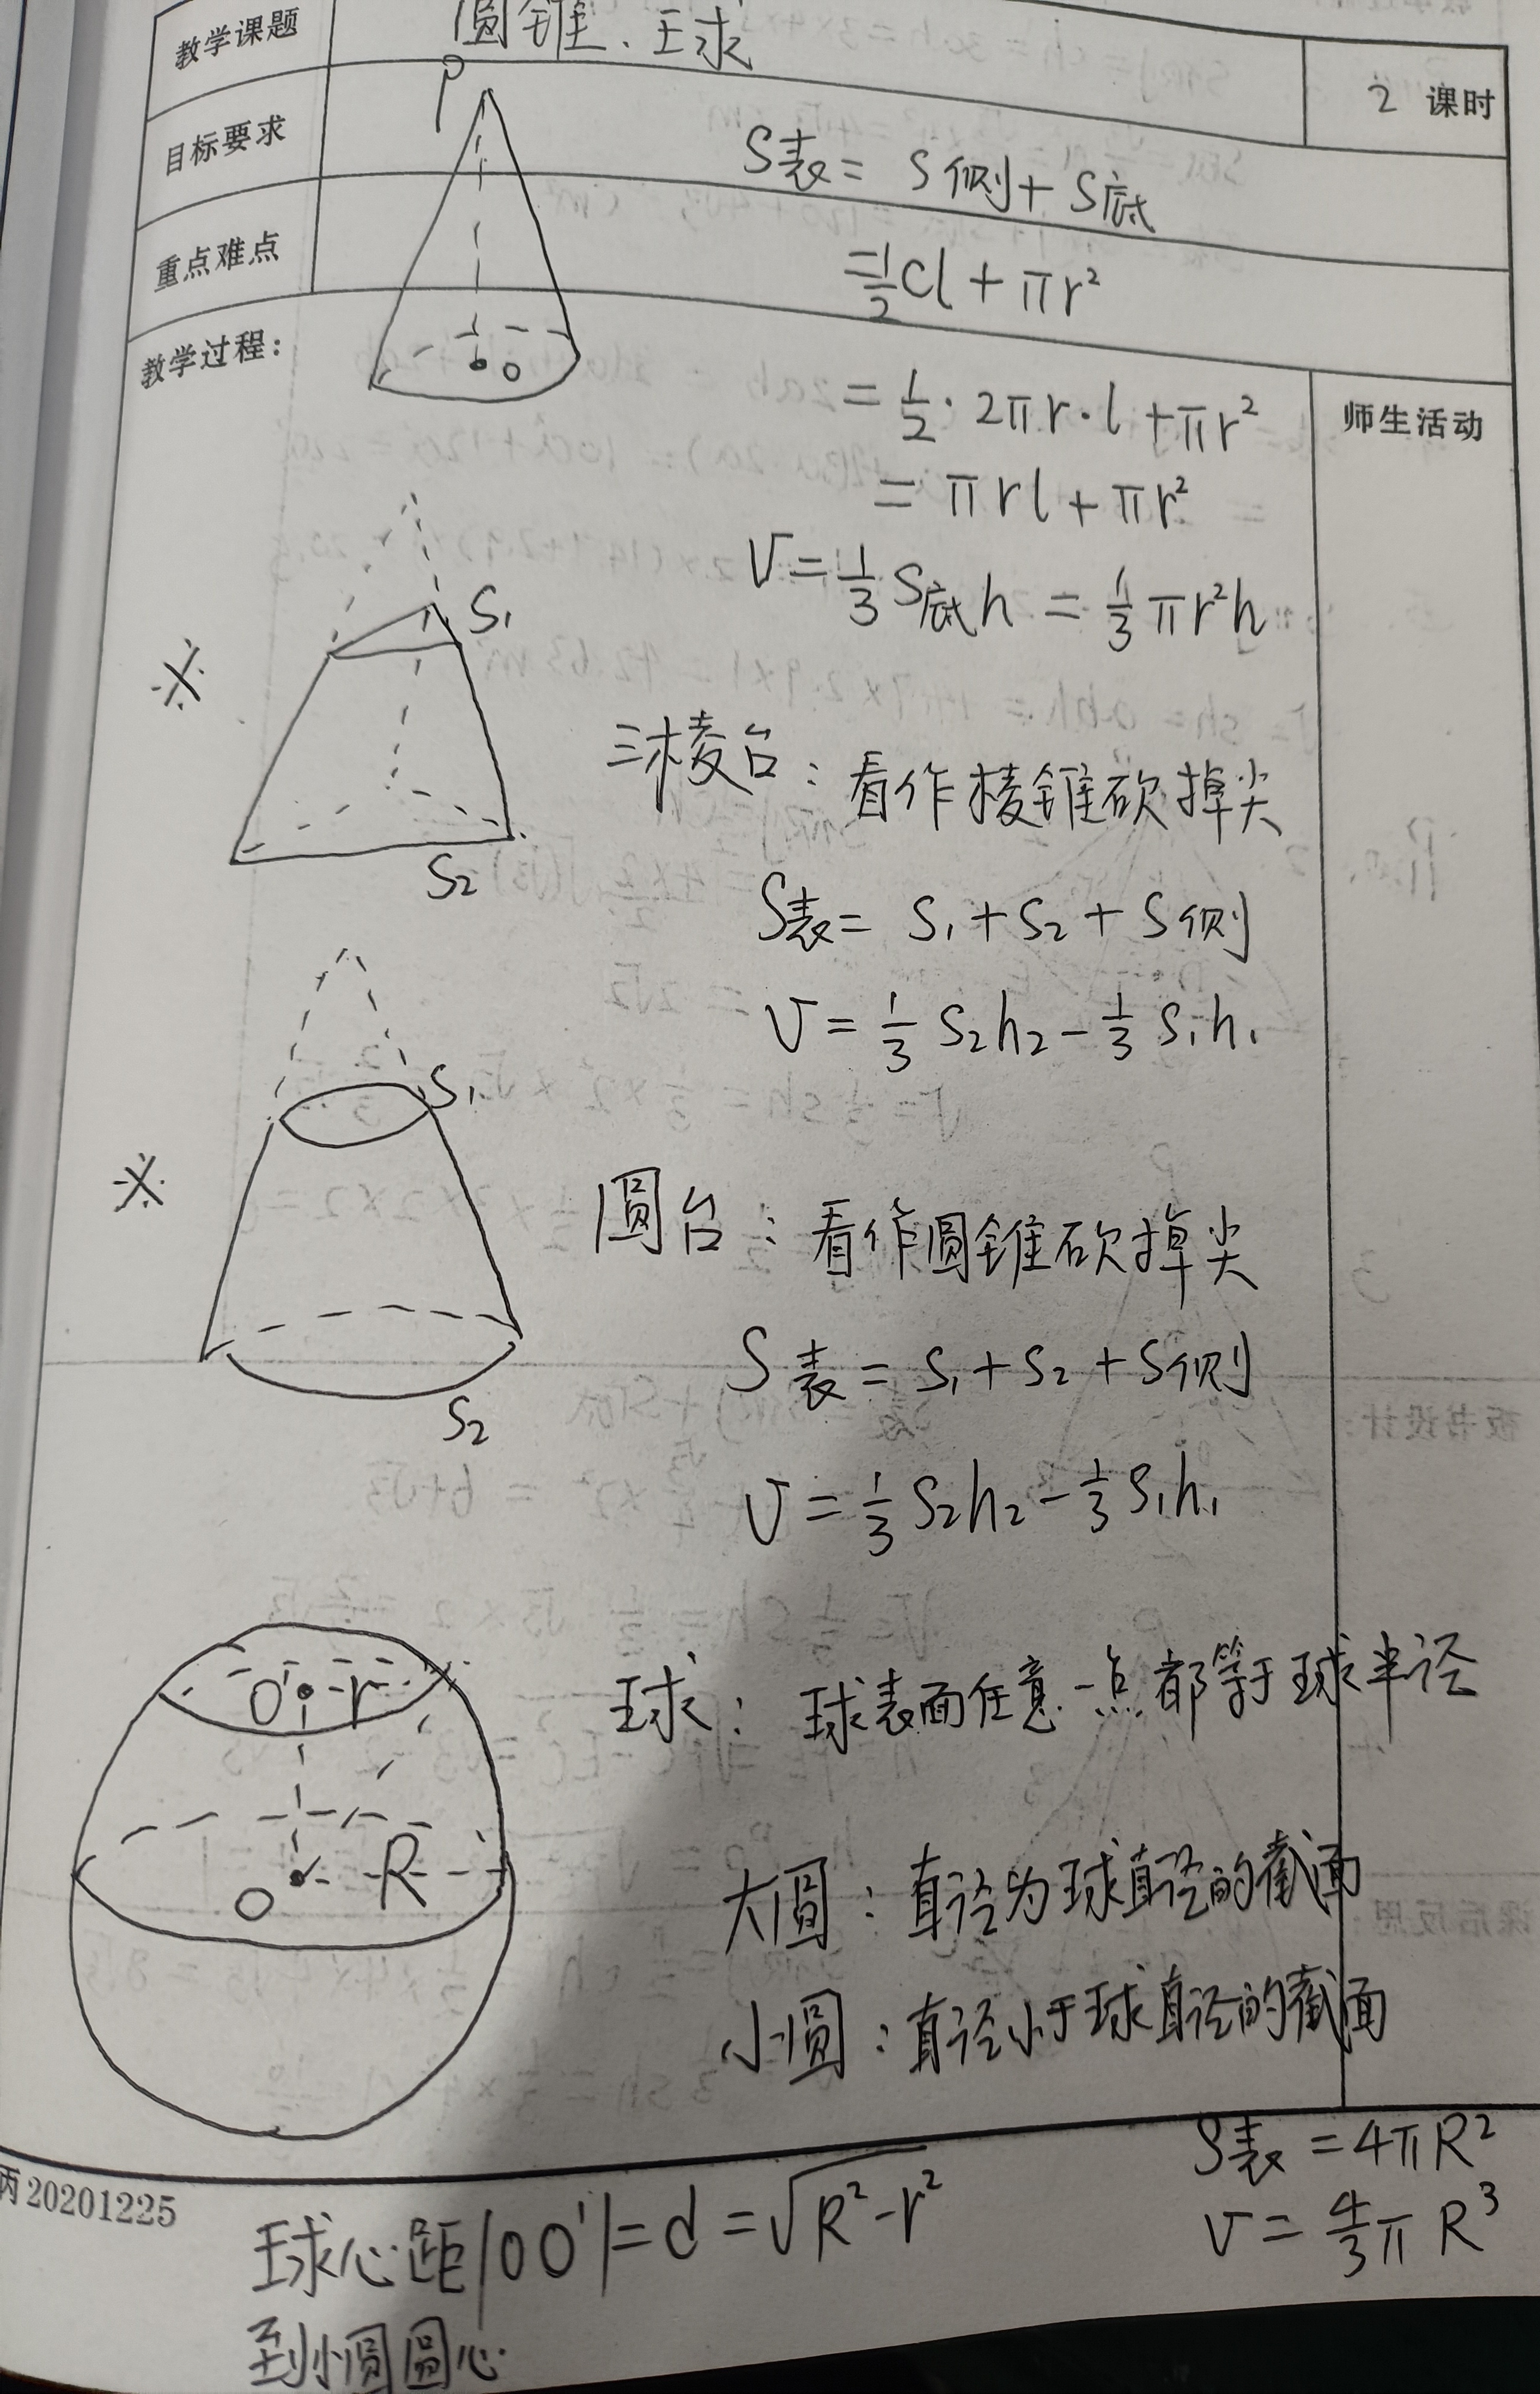 教学课题 圆锥、球
2 课时
目标要求
重点难点
教学过程:
师生活动
P
O
S表= S侧+S底
=½Cl+πr²
=½·2πr·l+πr²
=πrl+πr²
V=⅓S底h=⅓πr²h
※
S₁
S₂
三棱台:看作棱锥砍掉尖
S表= S₁+S₂+S侧
V=⅓S₂h₂-⅓S₁h₁
※
S₁
S₂
圆台:看作圆锥砍掉尖
S表=S₁+S₂+S侧
V=⅓S₂h₂-⅓S₁h₁
O' r
O R
球:球表面任意一点都等于球半径
大圆:直径为球直径的截面
小圆:直径小于球直径的截面
S表=4πR²
V=4/3πR³
丙20201225
球心距|OO'|=d=√(R²-r²)
到小圆圆心